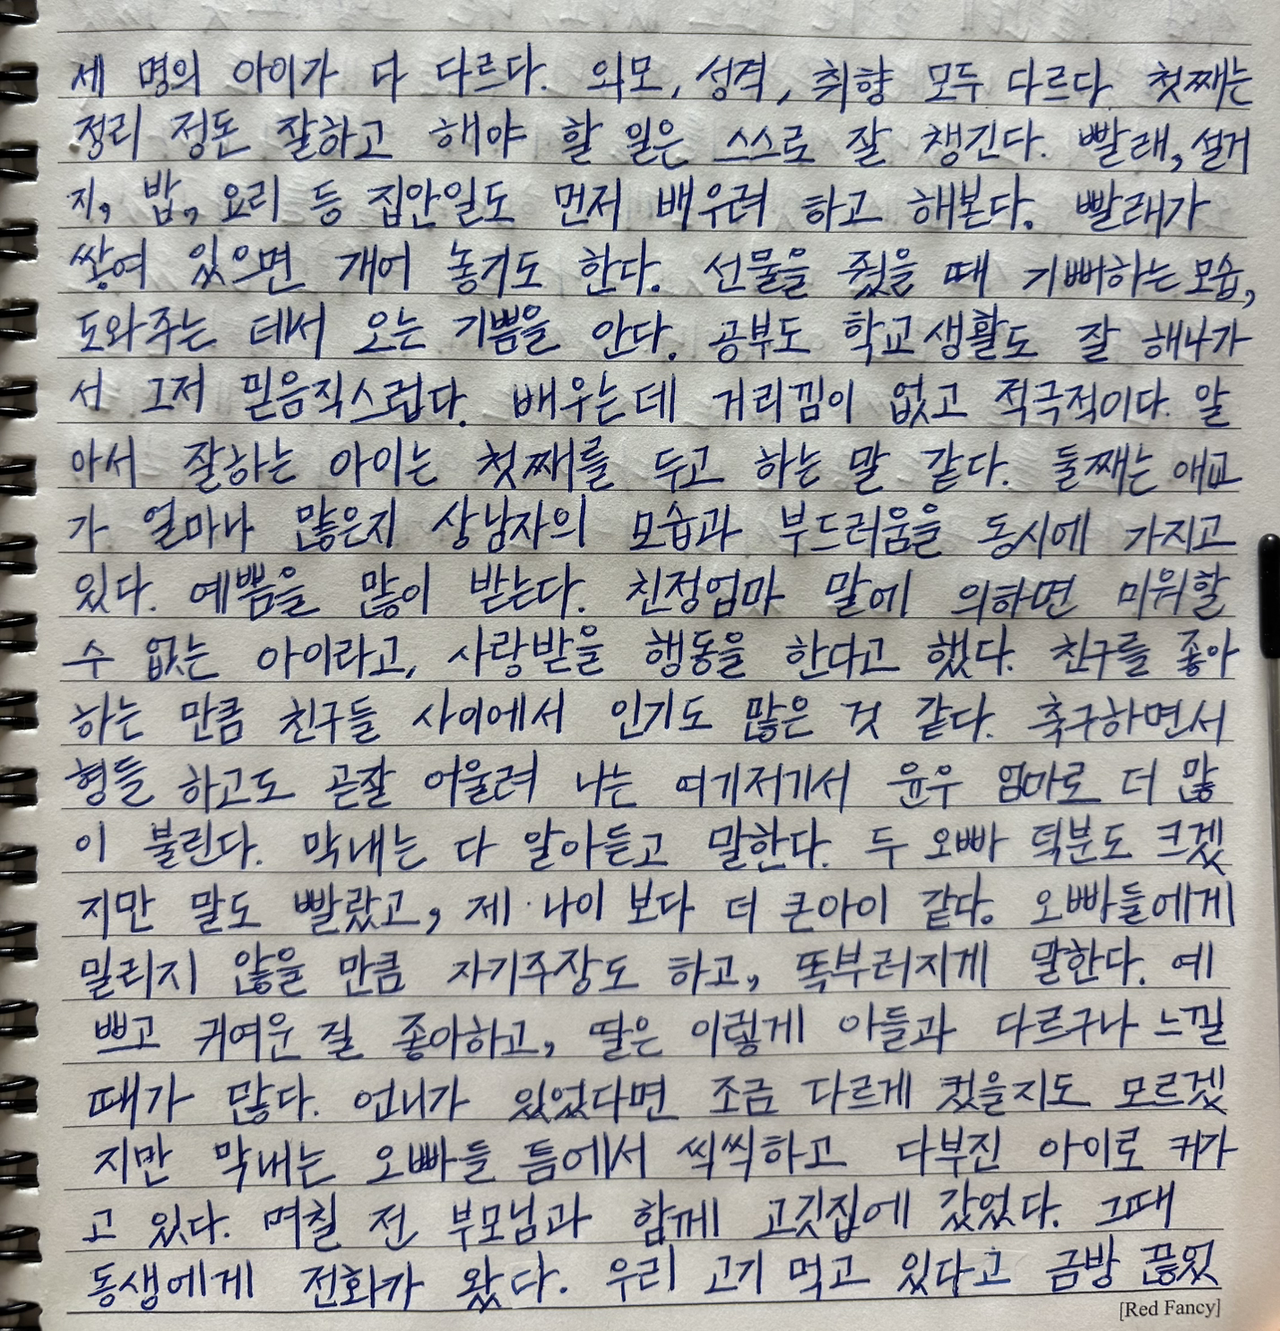 세 명의 아이가 다 다르다. 외모, 성격, 취향 모두 다르다. 첫째는
정리 정돈 잘하고 해야 할 일은 스스로 잘 챙긴다. 빨래, 설거
지, 밥, 요리 등 집안일도 먼저 배우려 하고 해본다. 빨래가
쌓여 있으면 개어 놓기도 한다. 선물을 줬을 때 기뻐하는 모습,
도와주는 데서 오는 기쁨을 안다. 공부도 학교생활도 잘 해나가
서 그저 믿음직스럽다. 배우는데 거리낌이 없고 적극적이다. 알
아서 잘하는 아이는 첫째를 두고 하는 말 같다. 둘째는 애교
가 얼마나 많은지 상남자의 모습과 부드러움을 동시에 가지고
있다. 예쁨을 많이 받는다. 친정엄마 말에 의하면 미워할
수 없는 아이라고, 사랑받을 행동을 한다고 했다. 친구를 좋아
하는 만큼 친구들 사이에서 인기도 많은 것 같다. 축구하면서
형들 하고도 곧잘 어울려 나는 여기저기서 윤우 엄마로 더 많
이 불린다. 막내는 다 알아듣고 말한다. 두 오빠 덕분도 크겠
지만 말도 빨랐고, 제 나이 보다 더 큰아이 같다. 오빠들에게
밀리지 않을 만큼 자기주장도 하고, 똑부러지게 말한다. 예
쁘고 귀여운 걸 좋아하고, 딸은 이렇게 아들과 다르구나 느낄
때가 많다. 언니가 있었다면 조금 다르게 컸을지도 모르겠
지만 막내는 오빠들 틈에서 씩씩하고 다부진 아이로 커가
고 있다. 며칠 전 부모님과 함께 고깃집에 갔었다. 그때
동생에게 전화가 왔다. 우리 고기 먹고 있다고 금방 끊었
[Red Fancy]